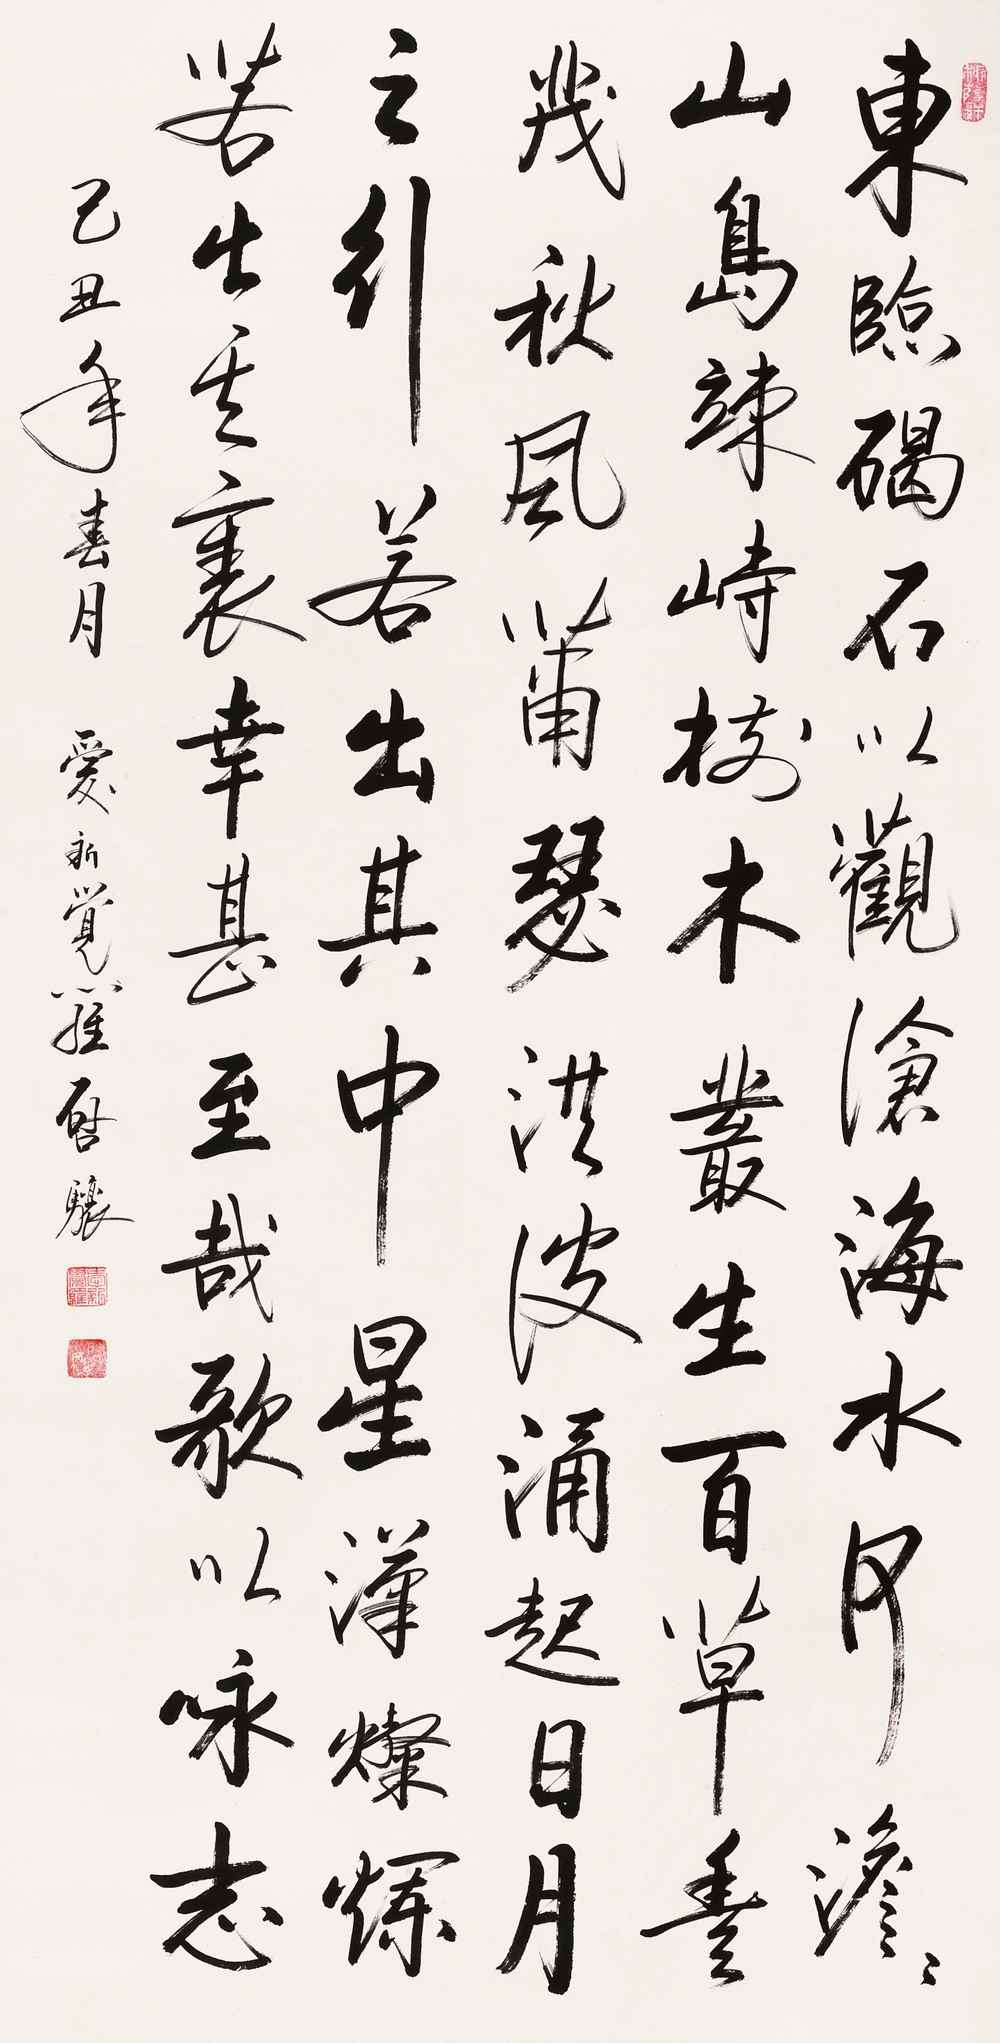 東臨碣石以觀滄海水何澹々
山島竦峙樹木叢生百草豐
茂秋風蕭瑟洪波涌起日月
之行若出其中星漢燦爛
若出其裏幸甚至哉歌以咏志
己丑年春月 愛新覺羅启驤